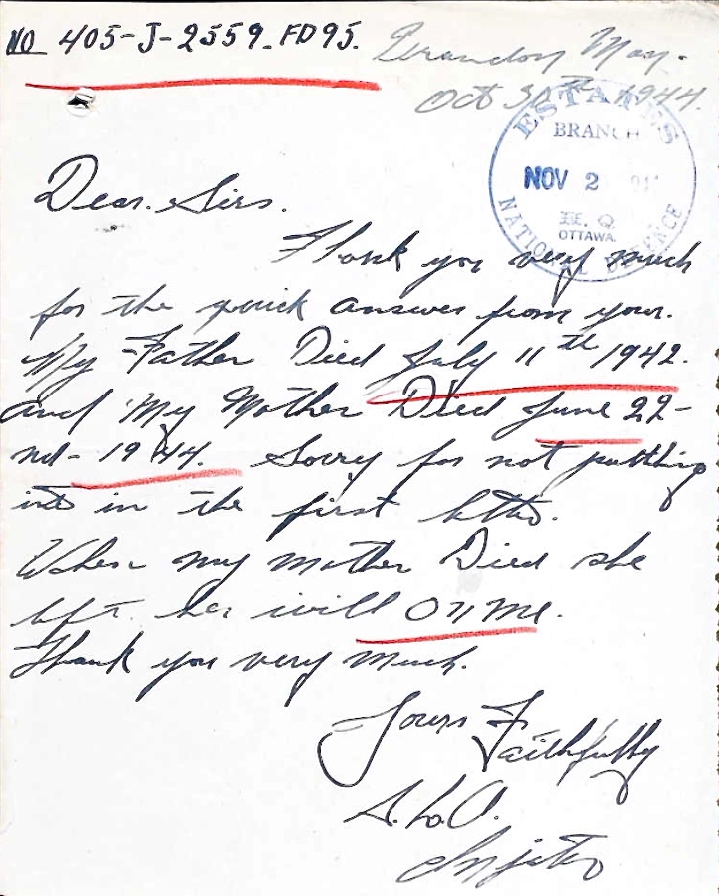 NO 405-J-2559. FD 95.
Brandon Man.
Oct 30th 1944.
ESTATES
BRANCH
NOV 2
H. Q.
OTTAWA.
NATIONAL DEFENCE
Dear. Sirs.
Thank you very much
for the quick answer from your.
My Father Died July 11th 1942.
and My Mother Died June 22-
nd- 1944. Sorry for not putting
in the first letter.
When my mother Died she
left. her will on me.
Thank you very much.
Yours Faithfully